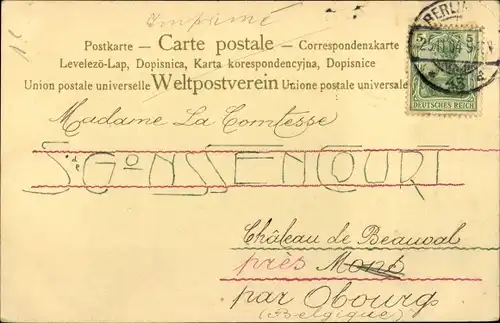 Imprimé
Postkarte — Carte postale — Correspondenzkarte
Levelezö-Lap, Dopisnica, Karta korespondencyjna, Dopisnice
Union postale universelle Weltpostverein Unione postale universale
BERLIN
5 5
DEUTSCHES REICH
Madame La Comtesse
de
Château de Beauval
près Mons
par Obourg
(Belgique)